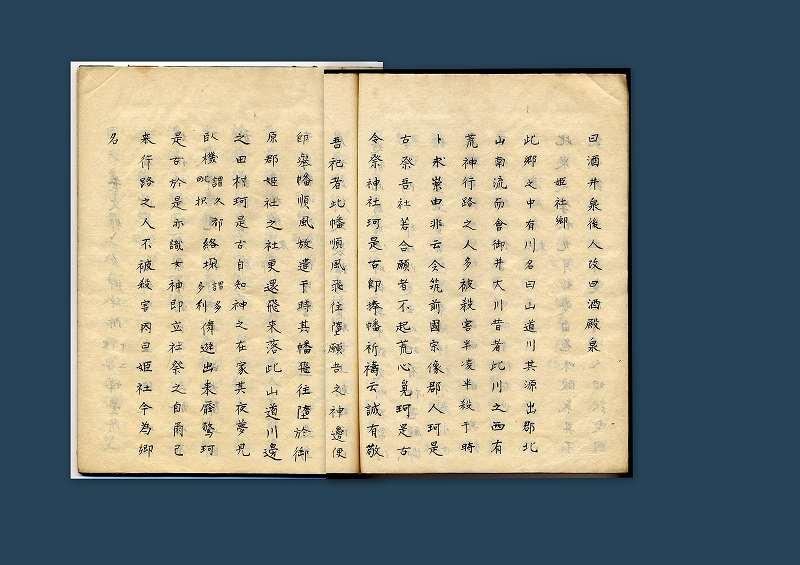 曰酒井泉後人改曰酒殿泉
姫社郷
此郷之中有川名曰山道川其源出郡北
山南流而會御井大川昔者此川之西有
荒神行路之人多被殺害半凌半殺于時
卜求祟由兆云令筑前國宗像郡人珂是
古祭吾社若合願者不起荒心覓珂是古
令祭神社珂是古即捧幡祈禱云誠有欲
吾祀者此幡順風飛往墮願吾之神邊便
即舉幡順風放遣于時其幡飛往墮於御
原郡姫社之社更還飛來落此山道川邊
之田村珂是古自知神之在家其夜夢見
臥機謂久都毗枳絡垜謂多多利儛遊出來壓驚珂
是古於是亦識女神即立社祭之自爾已
來行路之人不被殺害因曰姫社今為郷
名